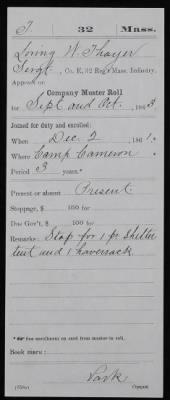 T. 32 Mass.
Loring W. Thayer
Sergt, Co. E, 32 Reg't Mass. Infantry.
Appears on
Company Muster Roll
for Sept and Oct, 1863
Joined for duty and enrolled:
When Dec. 2, 1861
Where Camp Cameron
Period 3 years.*
Present or absent Present
Stoppage, $ 100 for
Due Gov't, $ 100 for
Remarks: Stop for 1 pr shelter
tent and 1 haversack.
*See enrollment on card from muster-in roll.
Book mark:
(358)
Copyist.